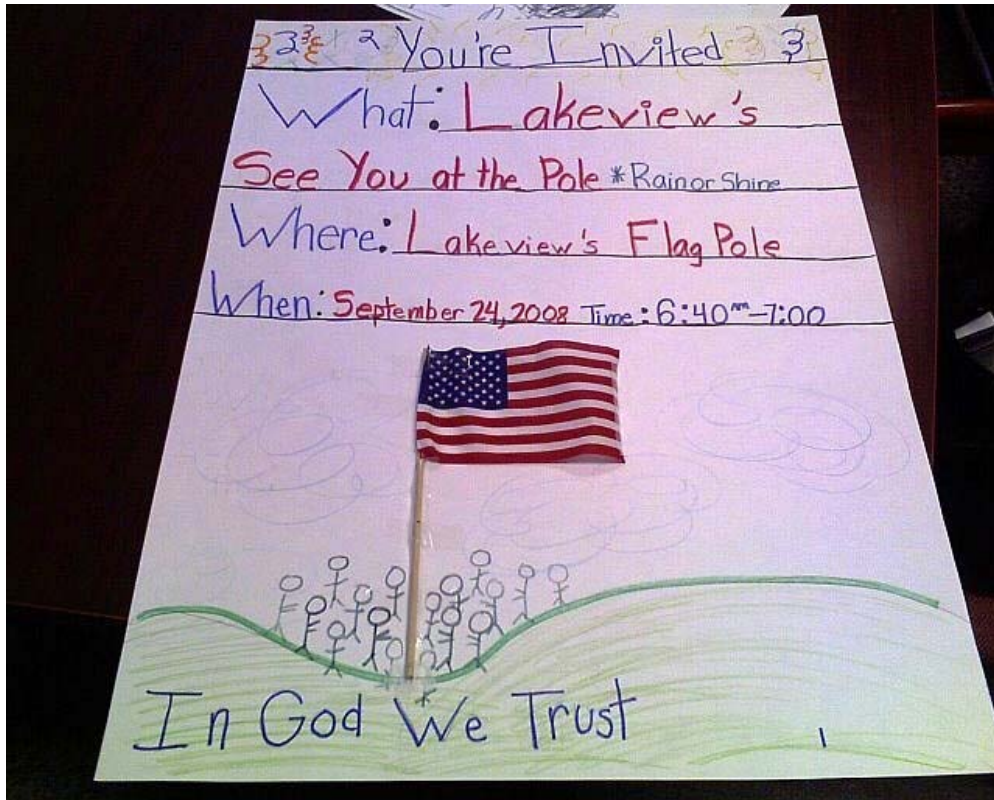 You're Invited
What: Lakeview's
See You at the Pole *Rain or Shine
Where: Lakeview's Flag Pole
When: September 24, 2008 Time: 6:40am-7:00
In God We Trust